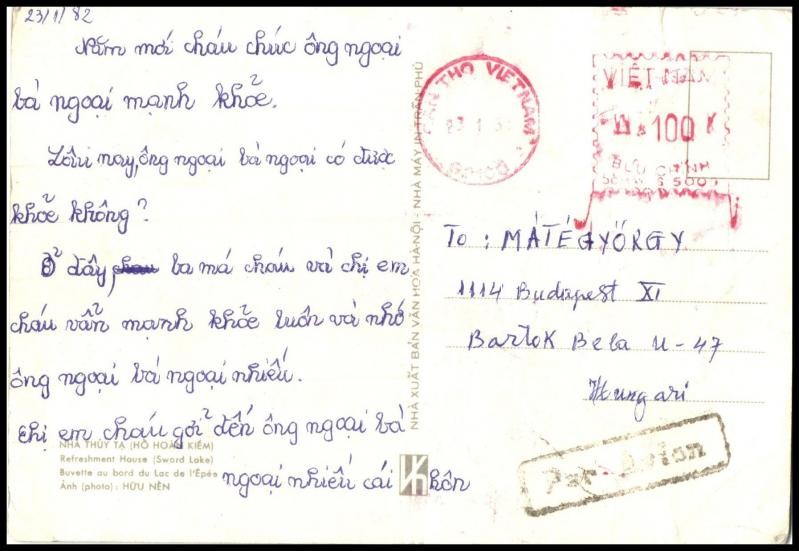 23/1/82
Năm mới cháu chúc ông ngoại
bà ngoại mạnh khoẻ.
Lâu nay, ông ngoại bà ngoại có được
khoẻ không?
Ở đây ba má cháu và chị em
cháu vẫn mạnh khoẻ luôn và nhớ
ông ngoại bà ngoại nhiều.
Chị em cháu gởi đến ông ngoại bà
ngoại nhiều cái hôn
NHÀ THỦY TẠ (HỒ HOÀN KIẾM)
Refreshment House (Sword Lake)
Buvette au bord du Lac de l'Épée
Ảnh (photo): HỮU NỀN
NHÀ XUẤT BẢN VĂN HÓA HÀNỘI - NHÀ MÁY IN TRẦN PHÚ
CẦN THƠ VIETNAM
VIỆT NAM
100
BƯU CHÍNH
To: MÁTÉ GYÖRGY
1114 Budapest XI
Bartok Bela u-47
Hungari
Par Avion